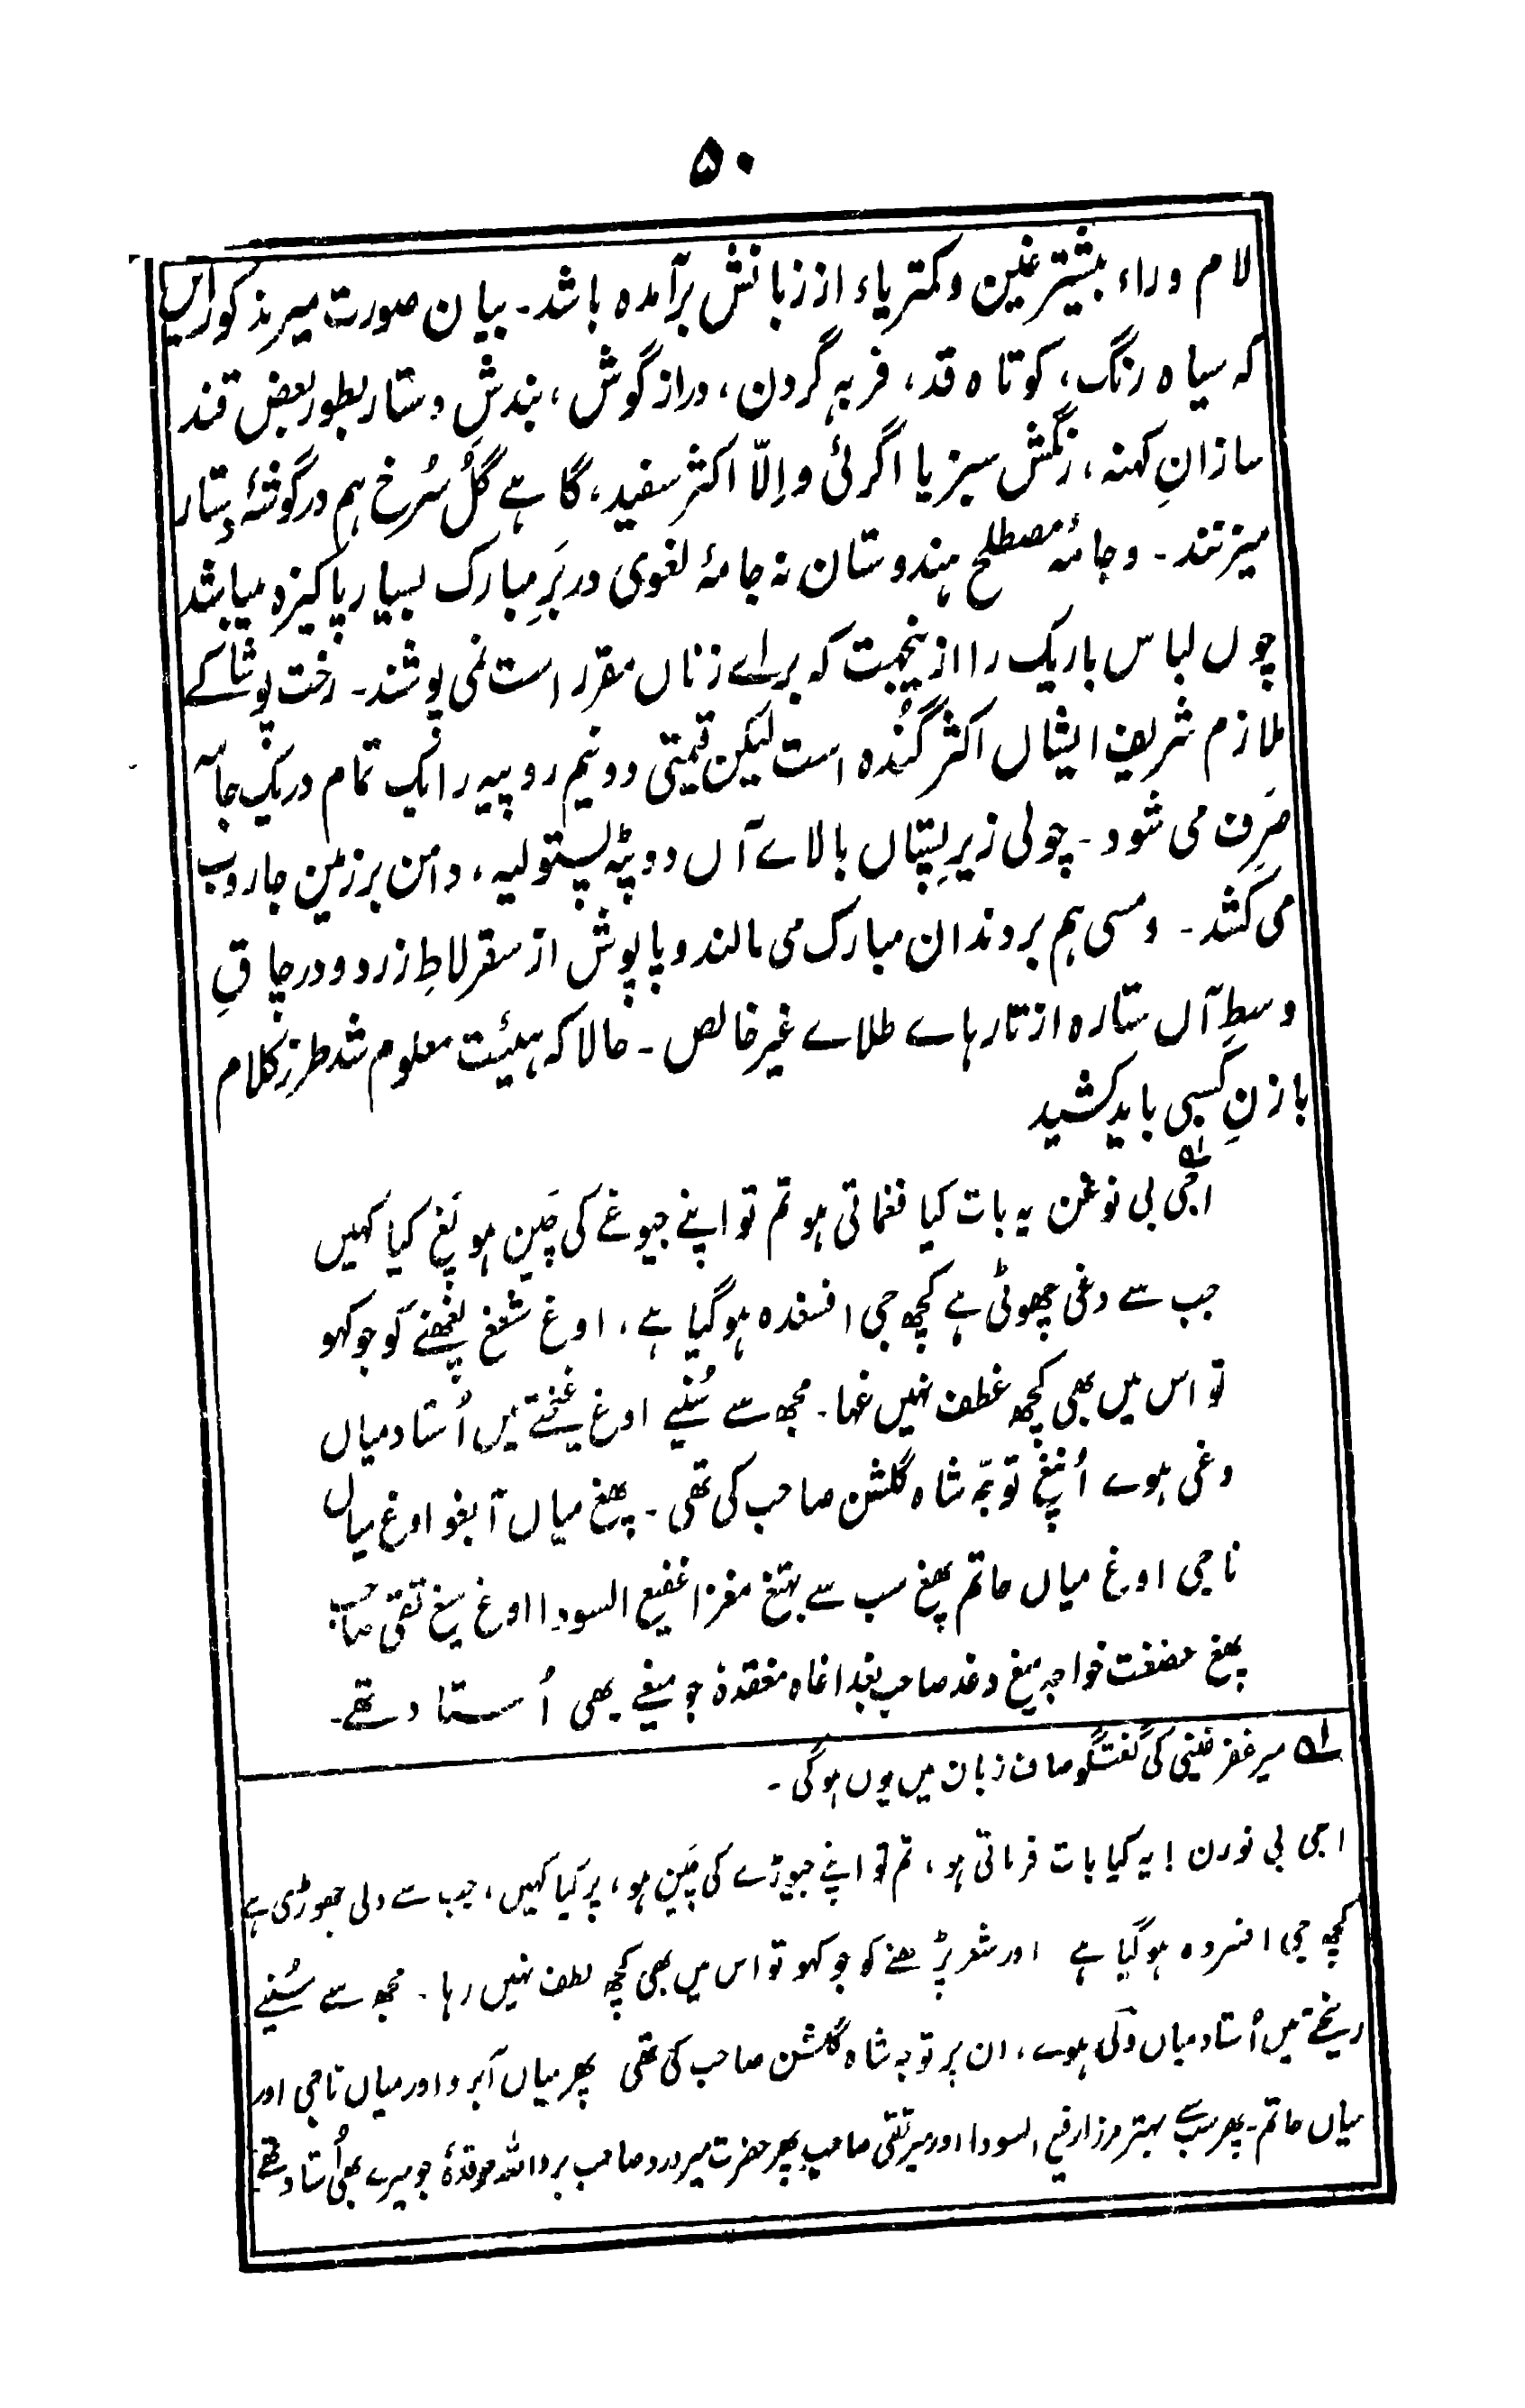 ۵۰
لام وراء بیشتر غین و کمتر یاء از زبانش برآمده باشد۔ بیان صورت میر مذکور این
که سیاه رنگ، کوتاه قد، فربہ گردن، دراز گوش، بندش دستار بطور بعض قند
سازانِ کہنہ، رنگش سبز یا اگرئی و اِلّا اکثر سفید، گاہے گلُ سُرخ ہم در گوشۂ دستار
میزنند۔ و جامۂ مصطلح ہندوستان نہ جامۂ لغوی در برَِ مبارک بسیار پاکیزہ میباشد
چوں لباس باریک را ازینجہت کہ براے زناں مقرر است نمی پوشند۔ رخت پوشاکے
ملازم شریف ایشاں اکثر گندُہ است لیکن قیمتی دو نیم روپیہ رانک تمام در یک جامہ
صَرف می شود۔ چولی زیرِ پستاں بالاے آں دوپٹہ پستولیہ، دامن بر زمین جاروب
می کشد۔ و مسی ہم بر دندان مبارک می مالند و پاپوش از سقرلاطِ زرد و در چاقِ
وسطِ آں ستارہ از تارہاے طلاے غیر خالص۔ حالا کہ ہیئت معلوم شد طرزِ کلام
با زنِ کسبی باید کشید
اجی بی نوغن ۱ یہ بات کیا فغماتی ہو تم تو اپنے جیوغے کی چَین ہو پَغ کیا کہیں
جب سے دغی چھوٹی ہے کچھ جی افسغدہ ہوگیا ہے، اوغ شغغ پغھنے کو جو کہو
تو اس میں بھی کچھ غطف نہیں غہا۔ مجھ سے سُنیے اوغ غیختے میں اُستاد میاں
وغی ہوے اُنپغ توجّہ شاہ گلشن صاحب کی تھی۔ پھغ میاں آبغو اوغ میاں
ناجی اوغ میاں حاتم پھغ سب سے بہتغ مغزا غفیع السودا اوغ میغ تقی صاحب
پھغ حضغت خواجہ میغ دغد صاحب بغد اغاہ مغقدۂ جو میغے بھی اُستاد تھے۔
۱ میر غفر غینی کی گفتگو صاف زبان میں یوں ہوگی۔
اجی بی نورن ! یہ کیا بات فرماتی ہو، تم تو اپنے جیوڑے کی چَین ہو، پر کیا کہیں، جب سے دلی چھوڑی ہے
کچھ جی افسردہ ہوگیا ہے اور شعر پڑھنے کو جو کہو تو اس میں بھی کچھ لطف نہیں رہا۔ مجھ سے سُنیے
ریختے میں اُستاد میاں ولی ہوے، ان پر توجہ شاہ گلشن صاحب کی تھی پھر میاں آبرو اور میاں ناجی اور
میاں حاتم۔ پھر سب سے بہتر مرزا رفیع السودا اور میر تقی صاحب پھر حضرت میر درد صاحب برد اللہ مرقدۂ جو میرے بھی اُستاد تھے